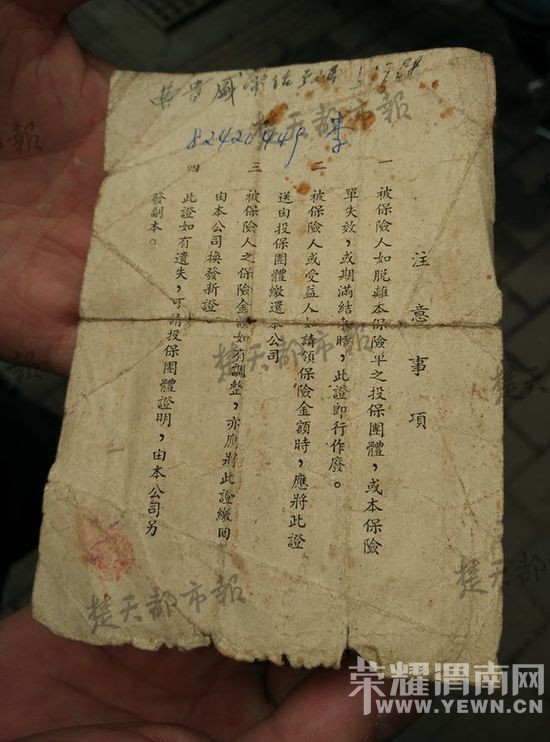 注意事項
一 被保險人如脫離本保險單之投保團體，或本保險
單失效，或期滿結束時，此證即行作廢。
二 被保險人或受益人如請領保險金額時，應將此證
送由投保團體繳還本公司
三 被保險人之保險金額如有調整，亦應將此證繳回
由本公司換發新證
四 此證如有遺失，可請投保團體證明，由本公司另
發副本。
82420449 李
楚天都市報
楚天都市報
楚天都市報
楚天都市報
荣耀渭南网
WWW.YEWN.CN